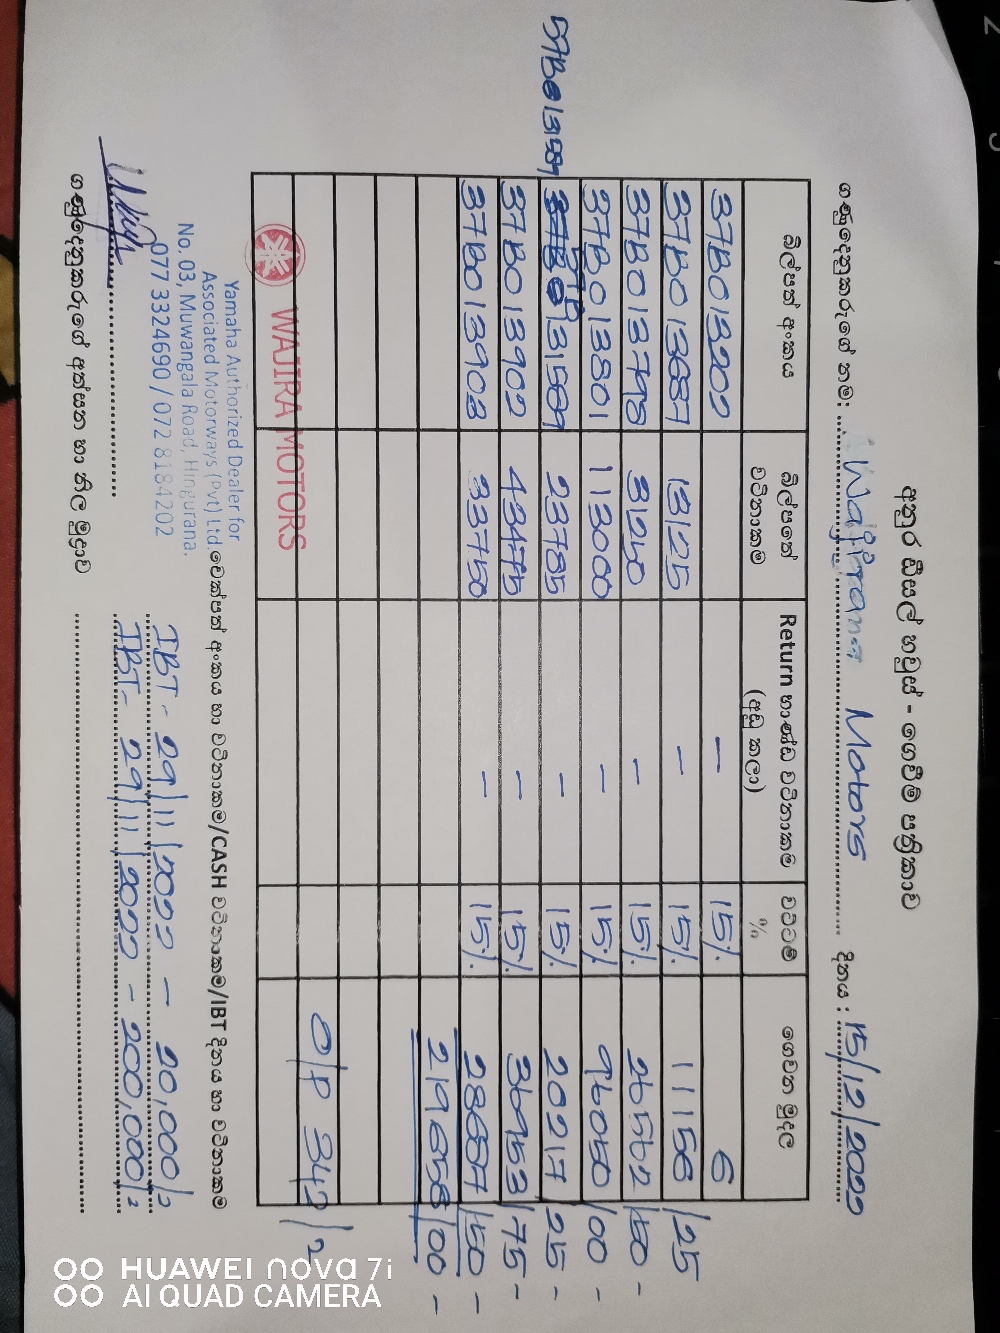 අනුර සියල් හවුස් - ගෙවීම් පත්‍රිකාව
ගණුදෙනුකරුගේ නම: Wajirana Motors දිනය : 15/12/2022
බිල්පත් අංකය බිල්පතේ වටිනාකම Return භාණ්ඩ වටිනාකම (අඩු කලා) වට්ටම් % ගෙවන මුදල
37B013202 – 15%. 6
37B013687 13125 – 15%. 11156/25
37B013798 31250 – 15%. 26562/50 –
37B013801 113000 – 15%. 96050/00 –
23785 – 15%. 20217/25 –
37B013902 43475 – 15%. 36953/75 –
37B013903 33750 – 15%. 28687/50 –
219658/00 –
O/P 342/2
WAJIRA MOTORS
Yamaha Authorized Dealer for
Associated Motorways (Pvt) Ltd.
No. 03, Muwangala Road, Hingurana.
077 3324690 / 072 8184202
චෙක්පත් අංකය හා වටිනාකම/CASH වටිනාකම/IBT දිනය හා වටිනාකම
IBT - 29/11/2022 – 20,000/2
IBT - 29/11/2022 - 200,000/2
ගණුදෙනුකරුගේ අත්සන හා නිල මුද්‍රාව
HUAWEI nova 7i
AI QUAD CAMERA